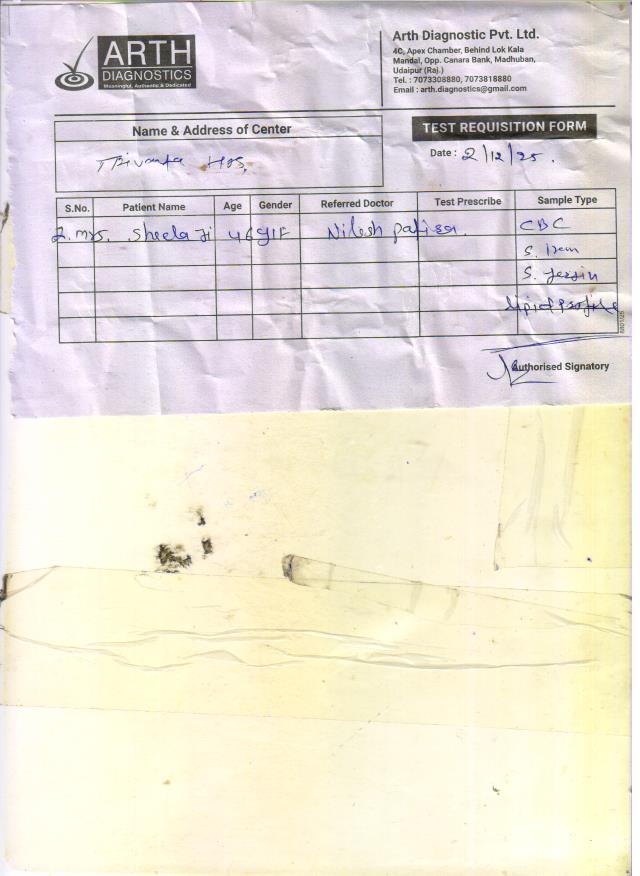 ARTH
DIAGNOSTICS
Meaningful, Authentic & Dedicated
Arth Diagnostic Pvt. Ltd.
4C, Apex Chamber, Behind Lok Kala
Mandal, Opp. Canara Bank, Madhuban,
Udaipur (Raj.)
Tel. : 7073308880, 7073818880
Email : arth.diagnostics@gmail.com
Name & Address of Center
TEST REQUISITION FORM
Hos.
Date : 2/12/25.
S.No. Patient Name Age Gender Referred Doctor Test Prescribe Sample Type
mrs. Sheela Ji 46 y/F Nilesh CBC
S. Iren
S. 
Lipid Profile
Authorised Signatory